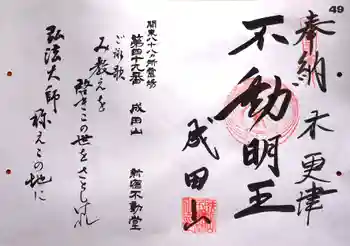 49
奉納 木更津
不動明王
成田山
関東八十八ヶ所霊場
第四十九番 成田山 新宿不動堂
ご詠歌
み教えを
啓きこの世を さとしけれ
弘法大師
称えこの地に